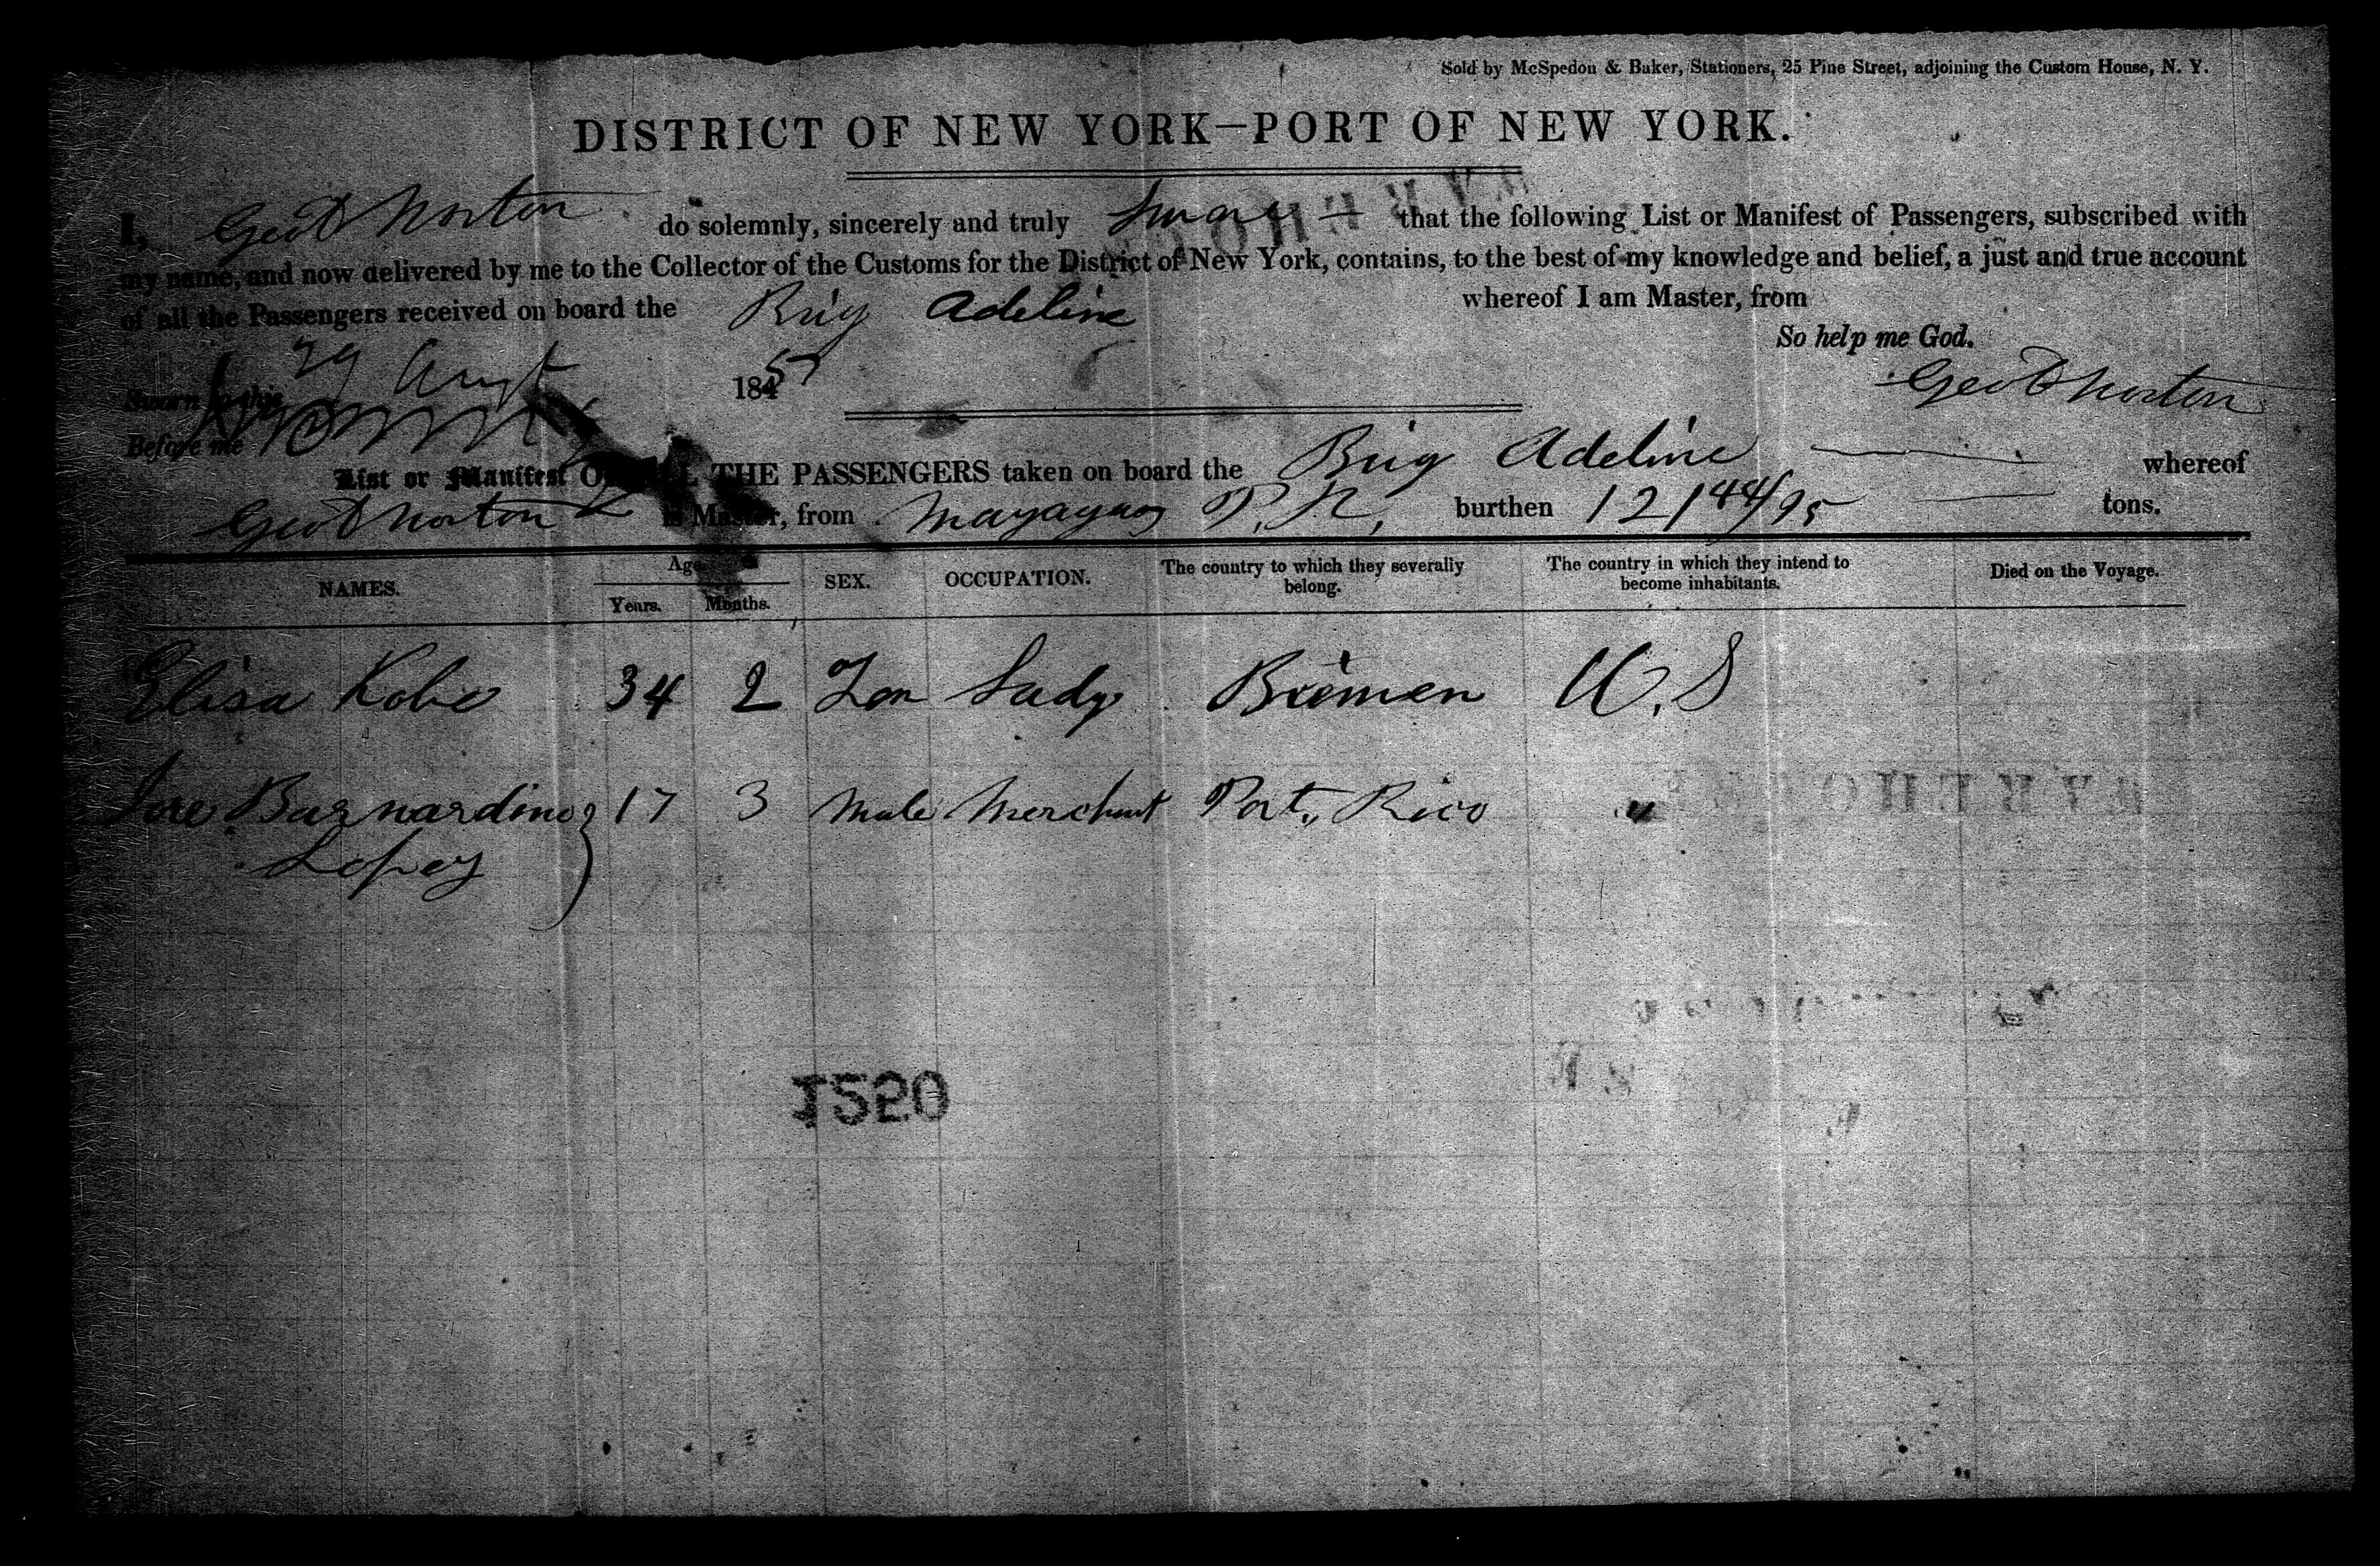 Sold by McSpedon & Baker, Stationers, 25 Pine Street, adjoining the Custom House, N. Y.
DISTRICT OF NEW YORK—PORT OF NEW YORK.
I, Geo D Norton do solemnly, sincerely and truly swear that the following List or Manifest of Passengers, subscribed with
my name, and now delivered by me to the Collector of the Customs for the District of New York, contains, to the best of my knowledge and belief, a just and true account
of all the Passengers received on board the Brig Adeline whereof I am Master, from
So help me God.
Sworn to this 29 Augt 185
Geo D Norton
Before me
List or Manifest OF ALL THE PASSENGERS taken on board the Brig Adeline whereof
Geo D Norton is Master, from Mayaguez P.R. burthen 121 44/95 tons.
NAMES. Age. SEX. OCCUPATION. The country to which they severally belong. The country in which they intend to become inhabitants. Died on the Voyage.
Years. Months.
Elisa Kobe 34 2 Fem Lady Bremen U.S
Jose Barnardino 17 3 Male Merchant Porto Rico "
Lopez
1590